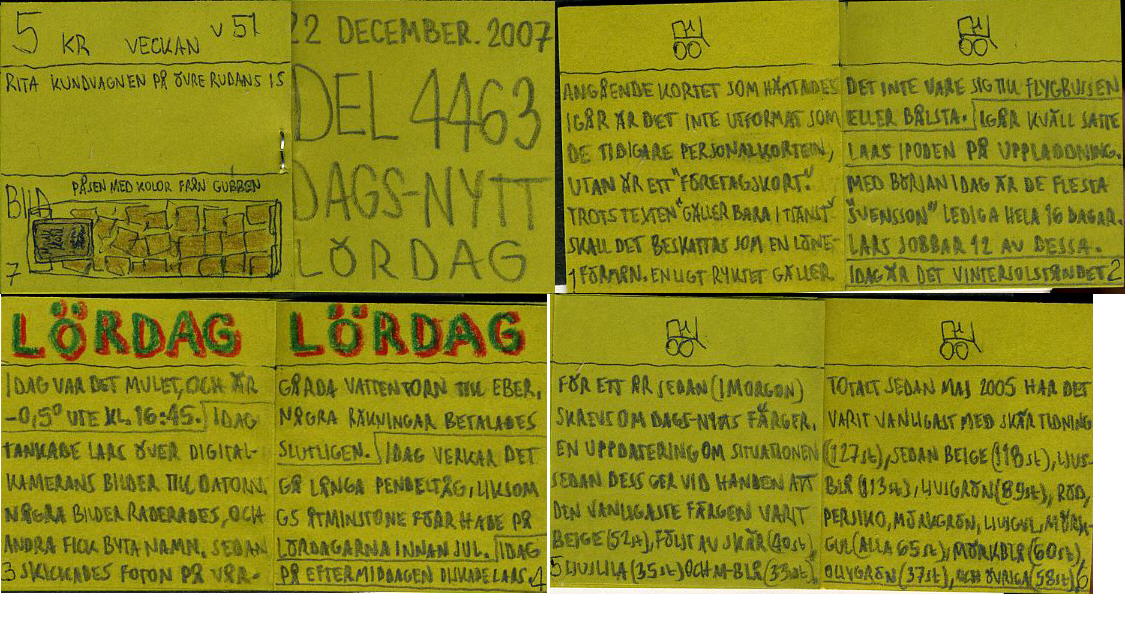 5 KR VECKAN V 51
RITA KUNDVAGNEN PÅ ÖVRE RUDANS IS
PÅSEN MED KOLOR FRÅN GUBBEN
BILD
7
22 DECEMBER. 2007
DEL 4463
DAGS-NYTT
LÖRDAG
ANGÅENDE KORTET SOM HÄMTADES
IGÅR ÄR DET INTE UTFORMAT SOM
DE TIDIGARE PERSONALKORTEN,
UTAN ÄR ETT "FÖRETAGSKORT".
TROTS TEXTEN "GÄLLER BARA I TJÄNST"
SKALL DET BESKATTAS SOM EN LÖNE-
1 FÖRMÅN. ENLIGT RYKTET GÄLLER
DET INTE VARE SIG TILL FLYGBUSSEN
ELLER BÅLSTA. IGÅR KVÄLL SATTE
LARS IPODEN PÅ UPPLADDNING.
MED BÖRJAN IDAG ÄR DE FLESTA
"SVENSSON" LEDIGA HELA 16 DAGAR.
LARS JOBBAR 12 AV DESSA.
IDAG ÄR DET VINTERSOLSTÅNDET 2
LÖRDAG
IDAG VAR DET MULET, OCH ÄR
-0,5° UTE KL. 16:45. IDAG
TANKADE LARS ÖVER DIGITAL-
KAMERANS BILDER TILL DATORN.
NÅGRA BILDER RADERADES, OCH
ANDRA FICK BYTA NAMN. SEDAN
3 SKICKADES FOTON PÅ VÅR-
LÖRDAG
GÅRDA VATTENTORN TILL EBER.
NÅGRA RÄKNINGAR BETALADES
SLUTLIGEN. IDAG VERKAR DET
GÅ LÅNGA PENDELTÅG, LIKSOM
GS ÅTMINSTONE FÖRR HADE PÅ
LÖRDAGARNA INNAN JUL. IDAG
PÅ EFTERMIDDAGEN DISKADE LARS. 4
FÖR ETT ÅR SEDAN (IMORGON)
SKREVS OM DAGS-NYTTS FÄRGER.
EN UPPDATERING OM SITUATIONEN
SEDAN DESS GER VID HANDEN ATT
DEN VANLIGASTE FÄRGEN VARIT
BEIGE (52ST), FÖLJT AV SKÄR (40ST),
5 LJUSLILA (35ST) OCH M-BLÅ (33ST).
TOTALT SEDAN MAJ 2005 HAR DET
VARIT VANLIGAST MED SKÄR TIDNING
(127ST), SEDAN BEIGE (118ST), LJUS-
BLÅ (113ST), LJUSGRÖN (89ST), RÖD,
PERSIKO, MÖRKGRÖN, LJUSGUL, MÖRK-
GUL (ALLA 65ST), MÖRKBLÅ (60ST),
OLIVGRÖN (37ST), OCH ÖVRIGA (58ST) 6